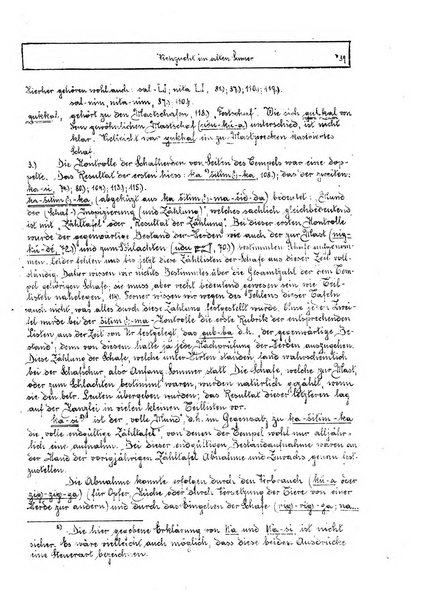 Viehzucht im alten Sumer
Hierher gehören wohl auch: sal-
gukkal, gehört zu den Mastschafen, 118.) "Fettschaf". Wie sich gukkal von
dem gewöhnlichen Mastschaf (udu-kú-a) unterschied, ist nicht
klar. Vielleicht war gukkal ein zu Mastzwecken kastriertes
Schaf.
3.) Die Kontrolle der Schafherden von Seiten des Tempels war eine dop-
pelte. Das Resultat der ersten hiess: 108.); das der zweiten:
ka-si 113.; 115.)
bedeutet: "Mund
der (Schaf-) Inspizierung (und Zählung)", welches sachlich gleichbedeutend
ist mit "Zähltafel" oder "Resultat der Zählung". Bei dieser ersten Kontrolle
wurde der gegenwärtige Bestand der Herden wie auch der zur Mast
und zum Schlachten bestimmten Schafe aufgenom-
men. Leider fehlen uns bis jetzt diese Zähllisten der Schafe aus dieser Zeit voll-
ständig. Daher wissen wir nichts Bestimmtes über die Gesamtzahl der dem Tem-
pel gehörigen Schafe; sie muss aber recht bedeutend gewesen sein, wie Teil-
listen nahelegen, Ferner wissen wir wegen des Fehlens dieser Tafeln
auch nicht, was alles durch diese Zählung festgestellt wurde.
die erste Rubrik der entsprechenden
Listen aus der Zeit von Ur festgestellt, das gub-ba d.h. "der gegenwärtige Be-
stand"; denn von diesem hatte ja jede Nachprüfung der Herden auszugehen.
Diese Zählung der Schafe, welche unter Hirten standen, fand wahrscheinlich
bei der Schafschur also Anfang Sommer statt. Die Schafe, welche zur Mast,
oder zum Schlachten bestimmt waren, wurden natürlich gezählt, wenn
sie den betr. Leuten übergeben wurden; das Resultat dieser letzteren lag
auf der Kanzlei in vielen kleinen Teillisten vor.
ka-si ist der "volle Mund", d.h. im Gegensatz zu
die "volle endgültige Zähltafel", von denen der Tempel wohl nur alljähr-
lich eine aufnahm. Bei dieser endgültigen Bestandaufnahme waren an
der Hand der vorjährigen Zähltafel Abnahme und Zuwachs genau fest-
zustellen.
Die Abnahme konnte erfolgen durch den Verbrauch (kú-a oder
zig-zig-ga) (für Opfer, Küche, oder durch Versetzung der Tiere von einer
Herde zur anderen) und durch das Eingehen der Schafe
Die hier gegebene Erklärung von ka und ka-si ist nicht
sicher. Es wäre vielleicht auch möglich, dass diese beiden Ausdrücke
eine Steuerart bezeichnen.